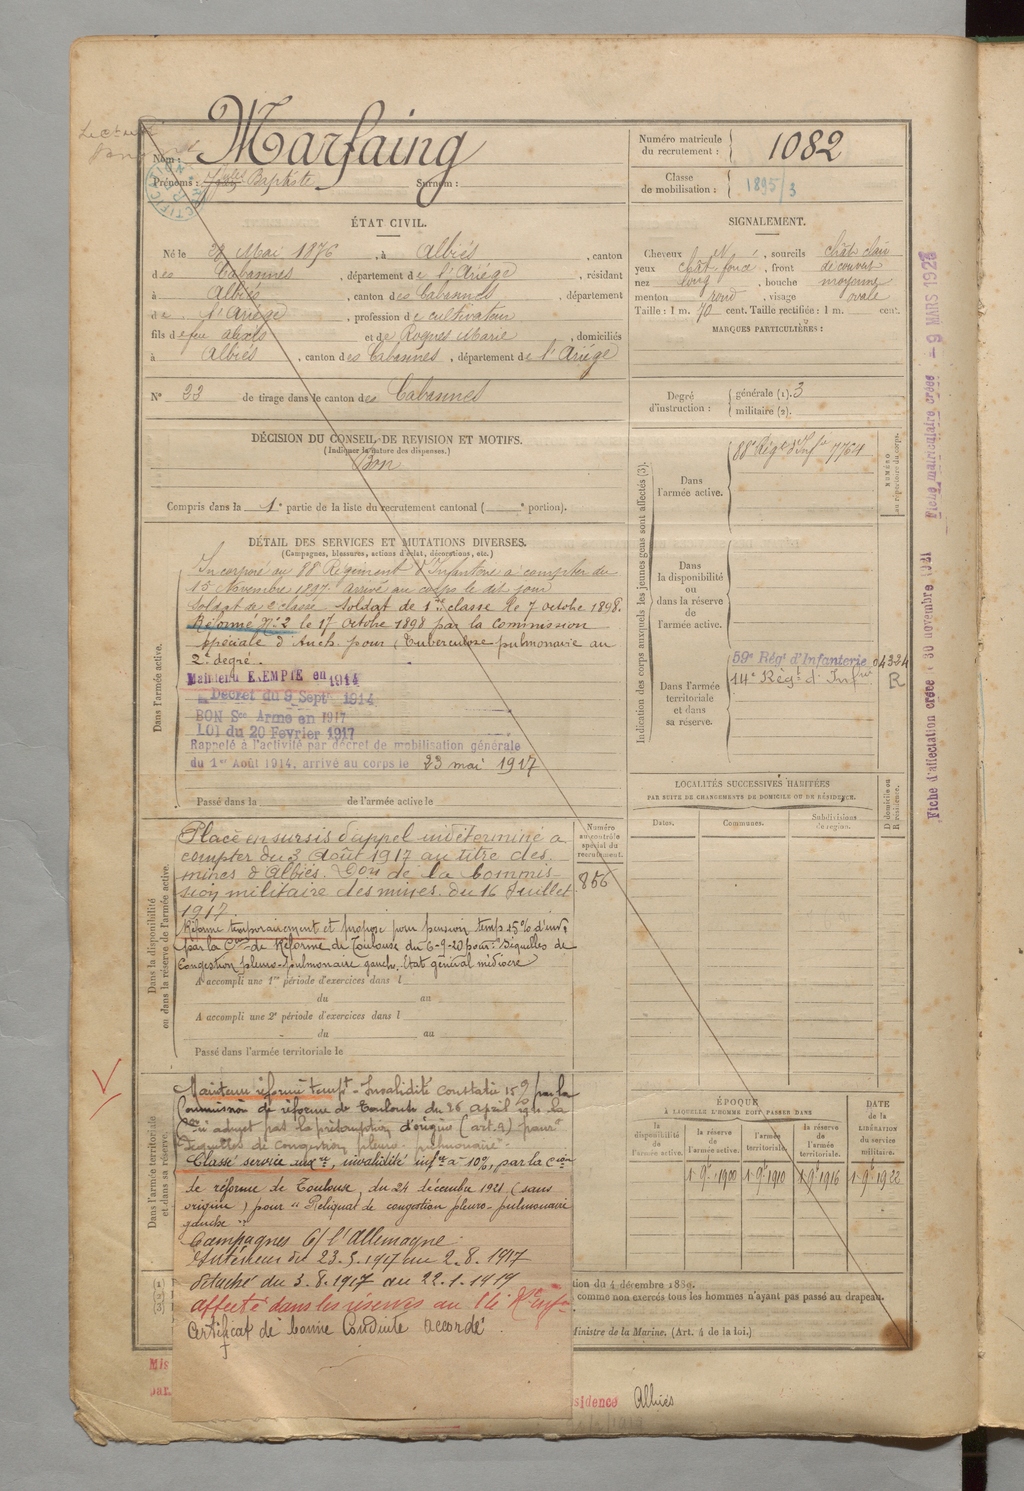 Nom : Marfaing
Prénoms : Baptiste Surnom :
Numéro matricule du recrutement : 1082
Classe de mobilisation : 1895/3
RECTIFICATION
ÉTAT CIVIL.
Né le Mai 1876, à Albiès, canton
des Cabannes, département de l'Ariège, résidant
à Albiès, canton des Cabannes, département
de l'Ariège, profession de cultivateur
fils de feu Alexis et de Roques Marie, domiciliés
à Albiès, canton des Cabannes, département de l'Ariège
N° 23 de tirage dans le canton des Cabannes
SIGNALEMENT.
Cheveux N, sourcils chât clair
yeux chât foncé, front découvert
nez long, bouche moyenne
menton rond, visage ovale
Taille : 1 m. 70 cent. Taille rectifiée : 1 m. cent.
MARQUES PARTICULIÈRES :
Degré d'instruction : générale (1). 3
militaire (2).
DÉCISION DU CONSEIL DE REVISION ET MOTIFS.
(Indiquer la nature des dispenses.)
Bon
Compris dans la 1e partie de la liste du recrutement cantonal ( e portion).
DÉTAIL DES SERVICES ET MUTATIONS DIVERSES.
(Campagnes, blessures, actions d'éclat, décorations, etc.)
Dans l'armée active.
Incorporé au 88e Régiment d'Infanterie à compter du
15 Novembre 1897 arrivé au corps le dit jour
soldat de 2e classe. Soldat de 1re classe le 7 octobre 1898.
Réformé N° 2 le 17 octobre 1898 par la Commission
spéciale d'Auch pour, Tuberculose pulmonaire au
2e degré.
Maintenu EXEMPTÉ en 1914
Décret du 9 Sept 1914
BON Sce Armé en 1917
LOI du 20 Février 1917
Rappelé à l'activité par décret de mobilisation générale
du 1er Août 1914, arrivé au corps le 23 mai 1917
Passé dans la de l'armée active le
Indication des corps auxquels les jeunes gens sont affectés (3).
NUMÉRO au répertoire du corps.
Dans l'armée active.
88e Régt d'Infie 7764
Dans la disponibilité ou dans la réserve de l'armée active.
Dans l'armée territoriale et dans sa réserve.
59e Régt d'Infanterie 04324
14e Régt d'Infie R
LOCALITÉS SUCCESSIVES HABITÉES
PAR SUITE DE CHANGEMENTS DE DOMICILE OU DE RÉSIDENCE.
Dates. Communes. Subdivisions de région.
D domicile ou R résidence.
Dans la disponibilité ou dans la réserve de l'armée active.
Numéro au contrôle spécial du recrutement.
856
Placé en sursis d'appel indéterminé à
compter du 3 Août 1917 au titre des
mines d'Albiès. Don de la Commis-
sion militaire des mines du 16 Juillet
1917.
Réformé temporairement et proposé pour pension temp 15% d'inv.
par la Con de Réforme de Toulouse du 6-9-20 pour : Séquelles de
congestion pleuro-pulmonaire gauche. Etat général médiocre
A accompli une 1re période d'exercices dans l
du au
A accompli une 2e période d'exercices dans l
du au
Passé dans l'armée territoriale le
Dans l'armée territoriale et dans sa réserve.
Maintenu réformé tempt - Invalidité constatée 15% par la
Commission de réforme de Toulouse du 26 april 1921 la
Con n'admet pas la présomption d'origine (art. 2) pour
séquelles de congestion pleuro-pulmonaire
Classé service auxre, invalidité infre à 10%, par la Con
de réforme de Toulouse, du 24 décembre 1921 (sans
origine) pour "Reliquat de congestion pleuro-pulmonaire
gauche"
Campagnes c/ l'Allemagne :
Intérieur du 23.5.1917 au 2.8.1917
détaché du 3.8.1917 au 22.1.1919
affecté dans les réserves au 14e Rt d'Infie
Certificat de bonne conduite accordé
ÉPOQUE
À LAQUELLE L'HOMME DOIT PASSER DANS
la disponibilité de l'armée active.
la réserve de l'armée active. 1 9e 1900
l'armée territoriale. 1 9e 1910
la réserve de l'armée territoriale. 1 9e 1916
DATE de la LIBÉRATION du service militaire. 1 9e 1922
tion du 4 décembre 1889.
comme non exercés tous les hommes n'ayant pas passé au drapeau.
Ministre de la Marine. (Art. 4 de la loi.)
Mis
par
sidence Albiès
Fiche d'affectation créée : 30 novembre 1921
Fiche matriculaire créée - 9 MARS 192